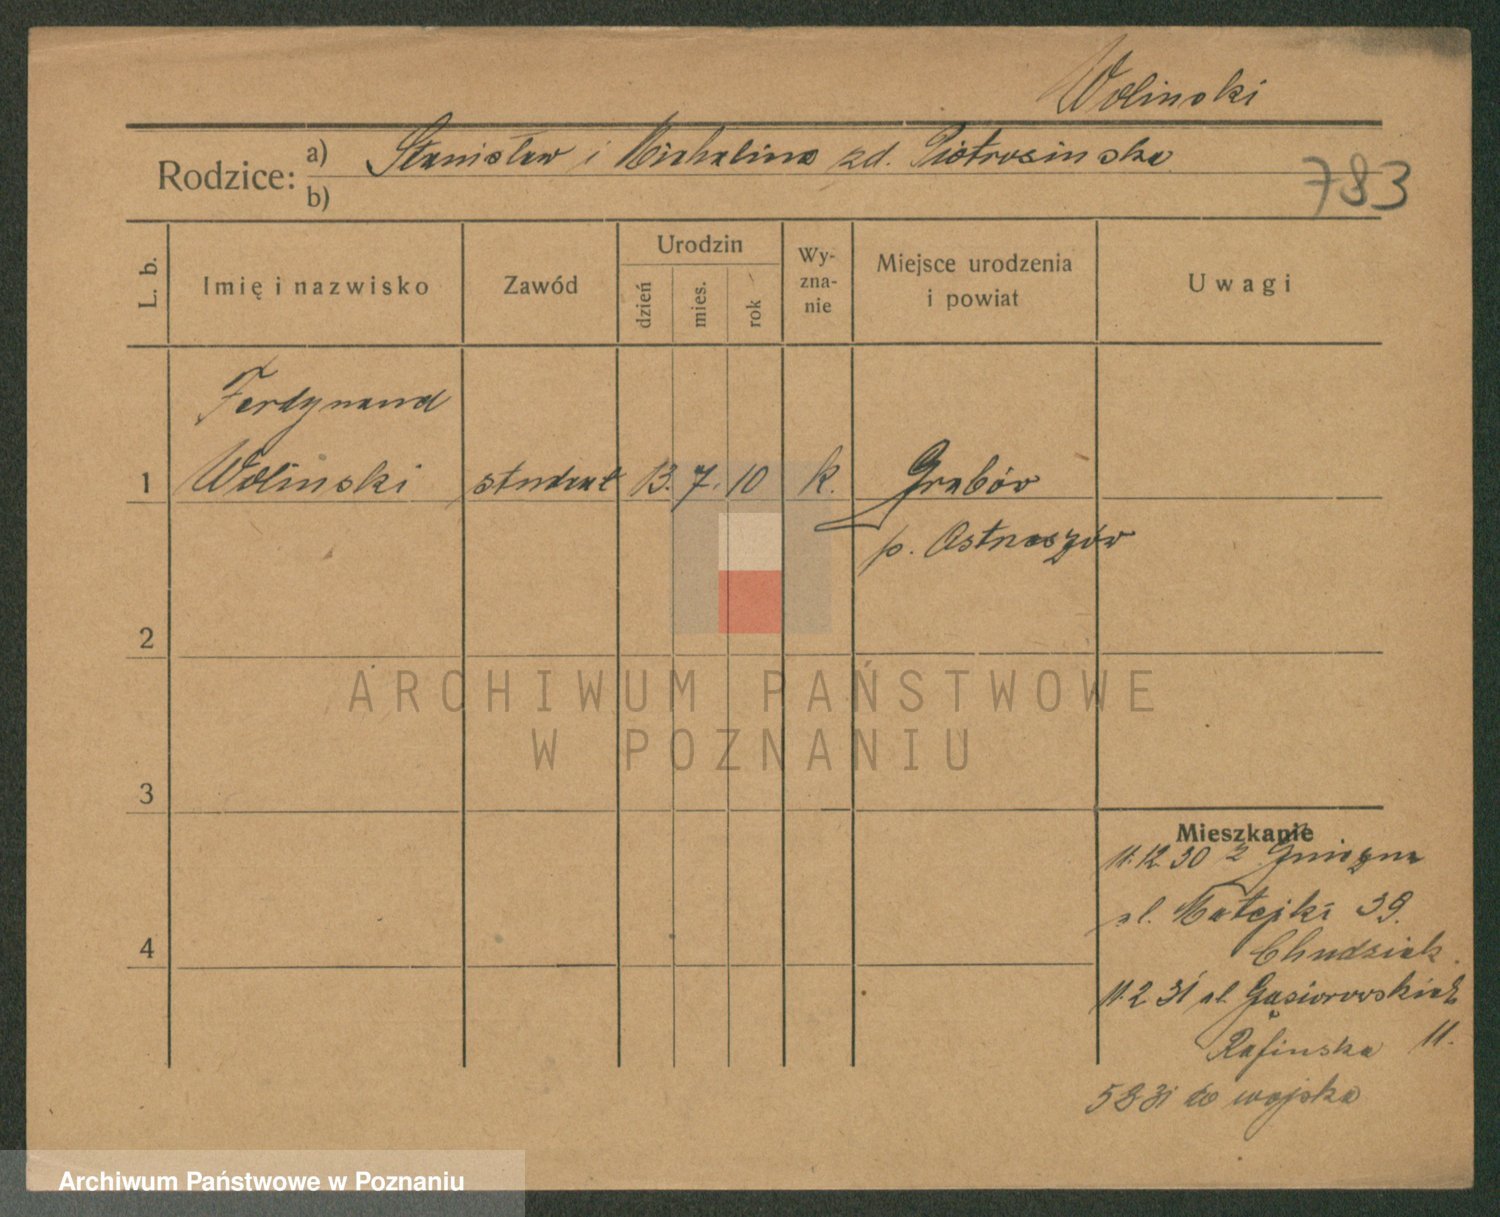 Wolinski
Rodzice: a) Stanisław i Michalina zd. Piotrosinska
b)
783
L. b.
Imię i nazwisko
Zawód
Urodzin
dzień
mies.
rok
Wy-
zna-
nie
Miejsce urodzenia
i powiat
Uwagi
Ferdynand
1 Wolinski student 13. 7. 10 k. Grabów
p. Ostrzeszów
2
ARCHIWUM PAŃSTWOWE
W POZNANIU
3
Mieszkanie
11.12.30 z Gniezna
ul. Matejki 39.
Chudziak.
4
11.2 31 ul. Gąsiorowskich
Rafinska 11.
5 8 31 do wojska
Archiwum Państwowe w Poznaniu